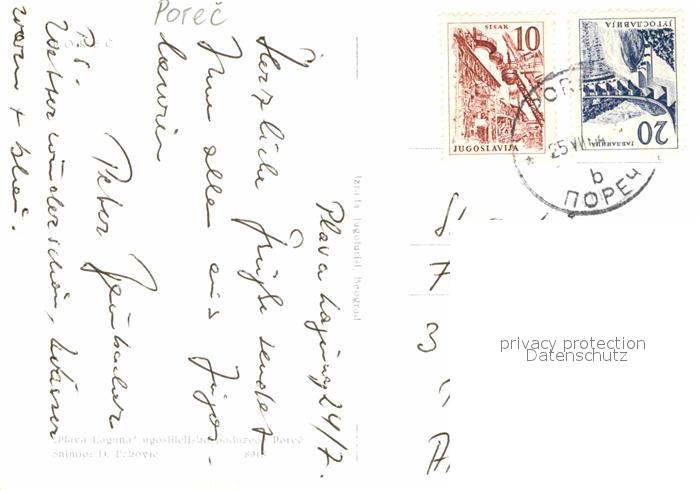 Poreč
Plava Laguna, 24/7.
Herzliche Grüße sendet
Ihnen allen aus Jugos-
lawien
Peter
P.S.
Wetter wunderschön, Wasser
warm +
"Plava Laguna" ugostiteljsko poduzeće Poreč
Snimio: D.
Izrada Jugoturist, Beograd
SISAK
10
JUGOSLAVIJA
ЈУГОСЛАВИЈА
20
ЈАБЛАНИЦА
25 VII
b
ПОРЕЧ
7
3
privacy protection
Datenschutz